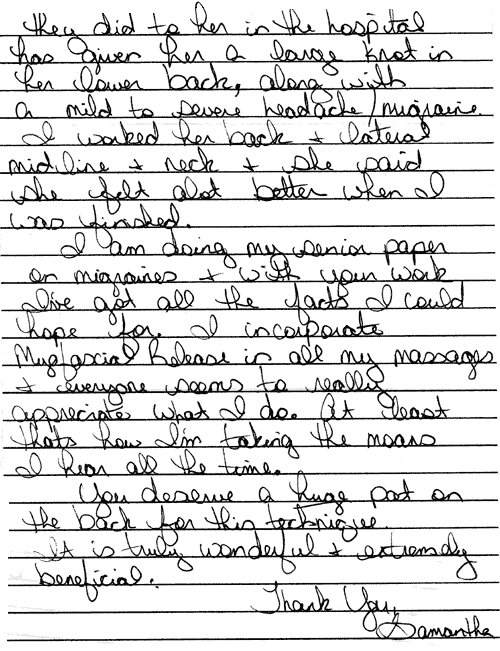 they did to her in the hospital
has given her a large knot in
her lower back, along with
a mild to severe headache/migraine.
I worked her back + lateral
midline + neck + she said
she felt alot better when I
was finished.
I am doing my senior paper
on migraines + with your work
I've got all the facts I could
hope for. I incorporate
Myofascial Release in all my massages
+ everyone seems to really
appreciate what I do. At least
thats how I'm taking the moans
I hear all the time.
You deserve a huge pat on
the back for this technique.
It is truly wonderful + extremely
beneficial.
Thank You,
Samantha